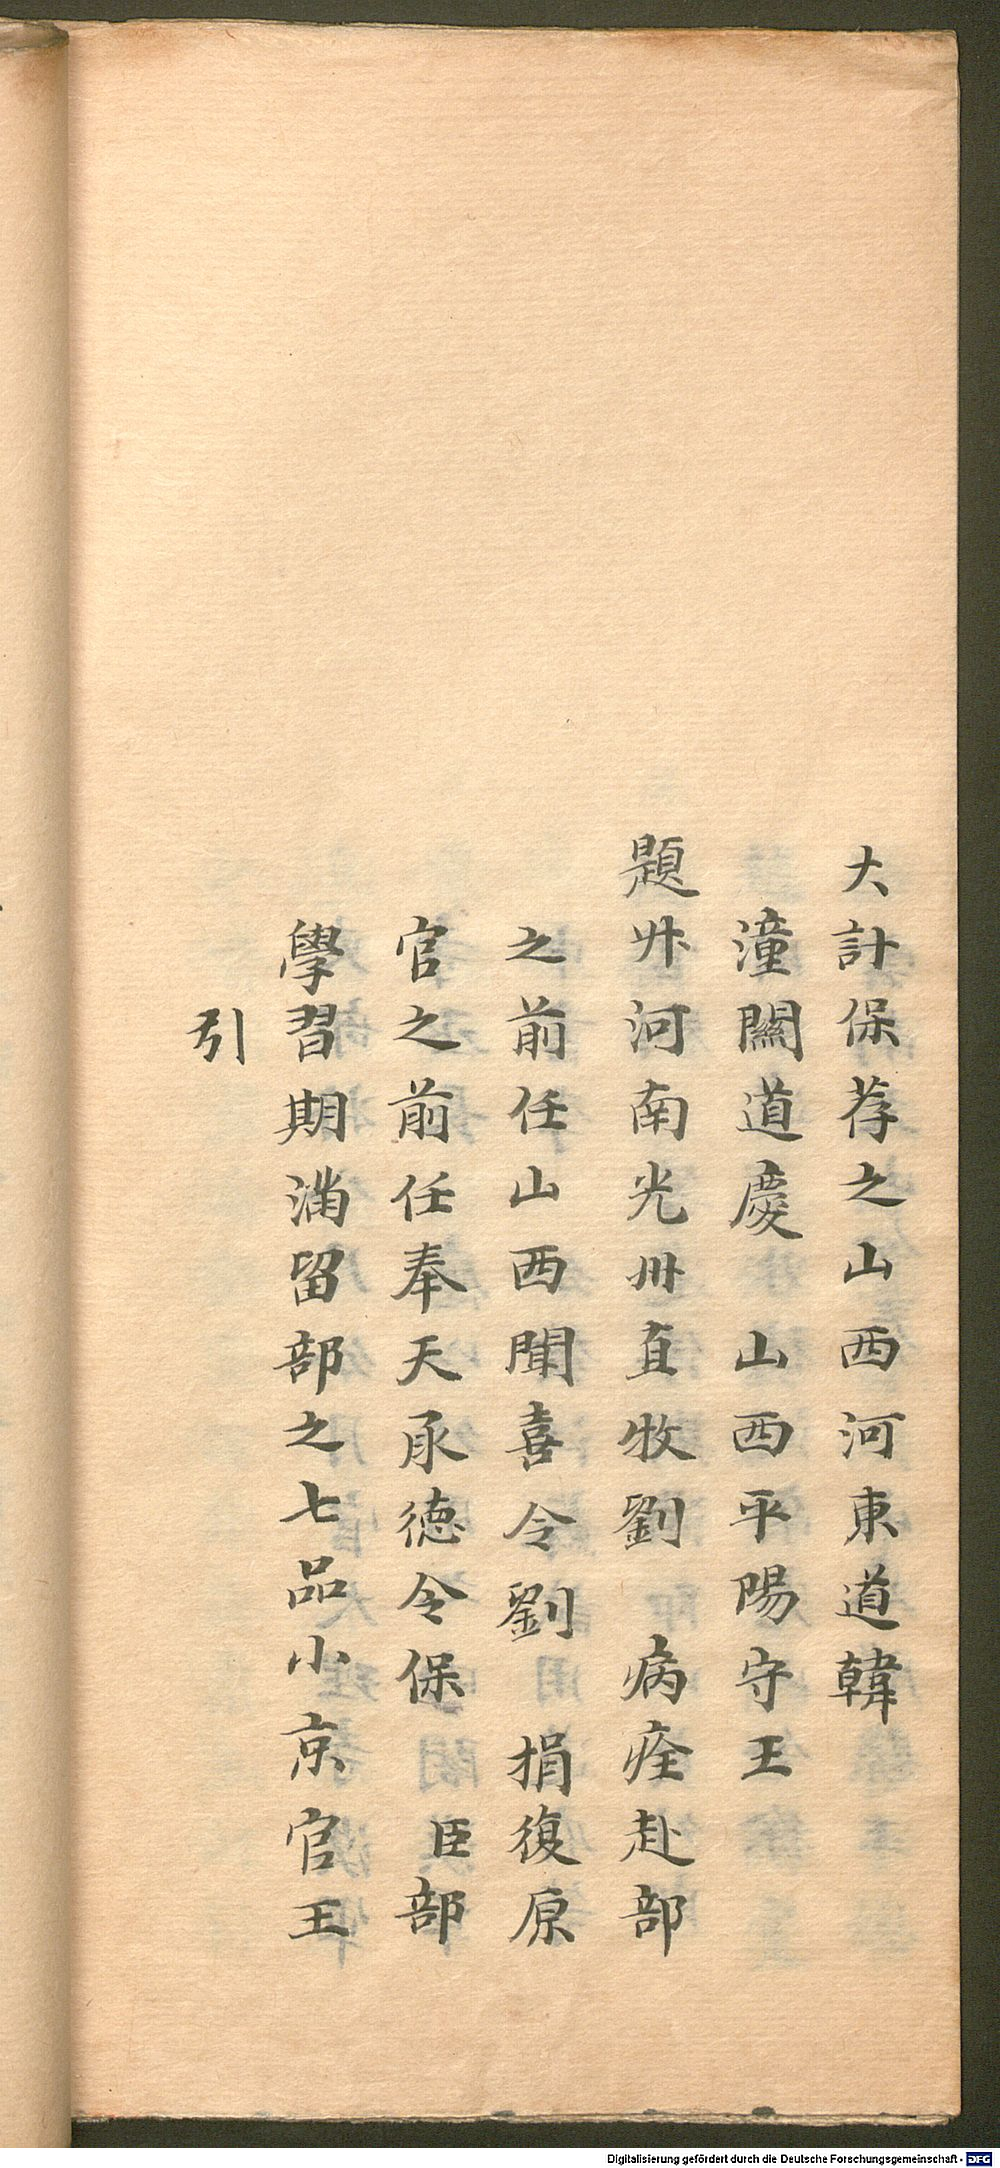 大計保荐之山西河東道韓
潼關道慶　山西平陽守王
題升河南光州直牧劉　病痊赴部
之前任山西聞喜令劉　捐復原
官之前任奉天承德令保　臣部
學習期滿留部之七品小京官王
引
Digitalisierung gefördert durch die Deutsche Forschungsgemeinschaft - DFG